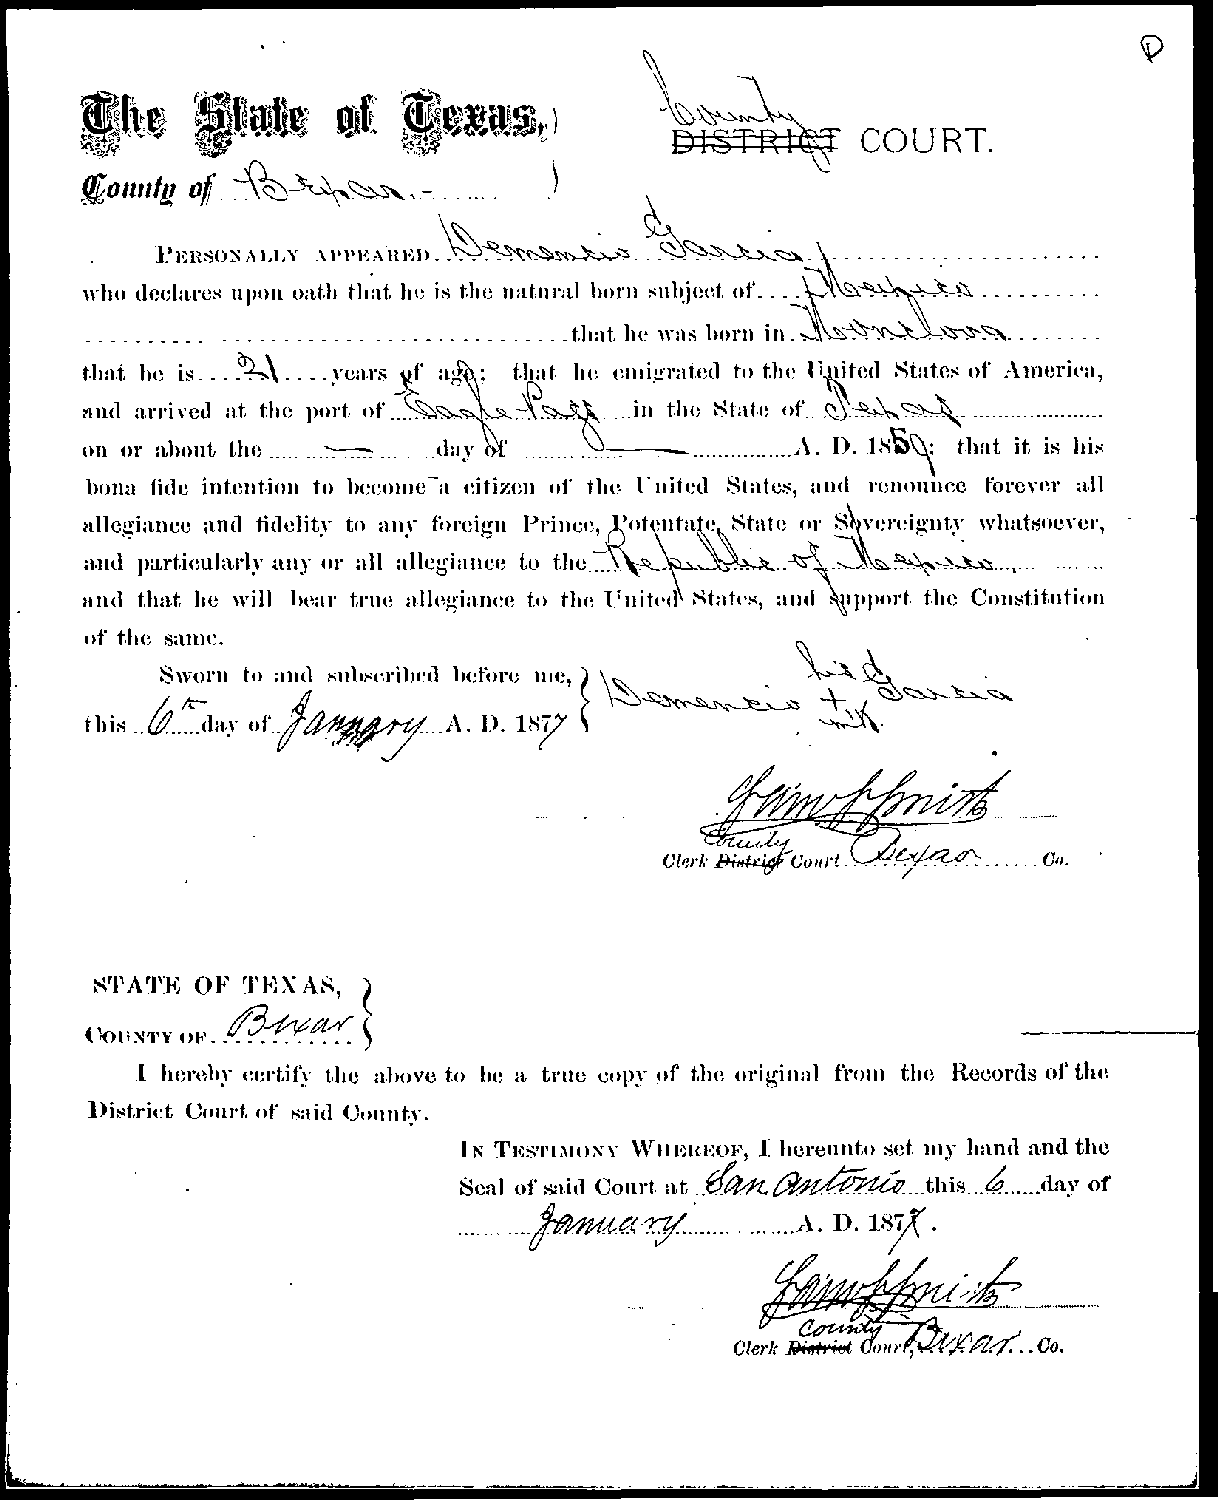 D
County
The State of Texas,)
DISTRICT COURT.
County of Bexar.- )
PERSONALLY APPEARED Demencio Garcia,
who declares upon oath that he is the natural born subject of Mexico
that he was born in Mounclova
that he is 21 years of age; that he emigrated to the United States of America,
and arrived at the port of Eagle Pass in the State of Texas
on or about the — day of — A. D. 1859; that it is his
bona fide intention to become a citizen of the United States, and renounce forever all
allegiance and fidelity to any foreign Prince, Potentate, State or Sovereignty whatsoever,
and particularly any or all allegiance to the Republic of Mexico,
and that he will bear true allegiance to the United States, and support the Constitution
of the same.
Sworn to and subscribed before me,
this 6th day of January A. D. 1877
his
Demencio + Garcia
mk.
Smith
County
Clerk District Court Bexar Co.
STATE OF TEXAS,
COUNTY OF Bexar
I hereby certify the above to be a true copy of the original from the Records of the
District Court of said County.
IN TESTIMONY WHEREOF, I hereunto set my hand and the
Seal of said Court at San Antonio this 6 day of
January A. D. 1877.
Smith
County
Clerk District Court, Bexar Co.